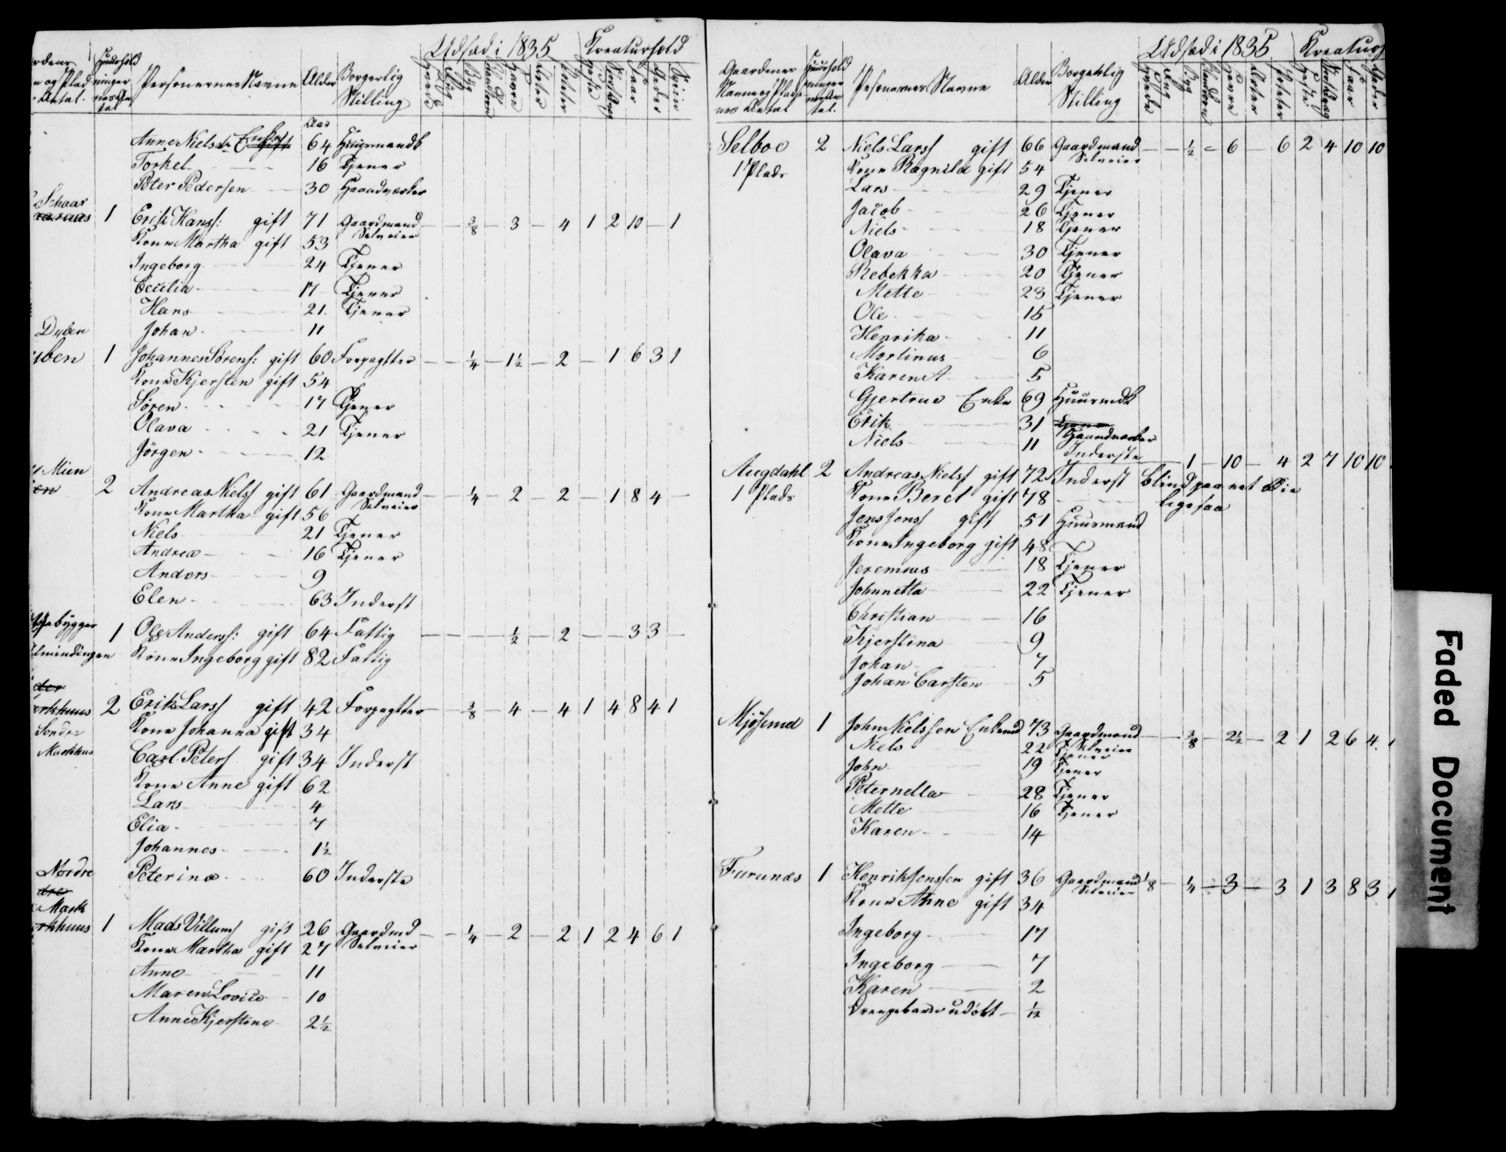 Udsæd i 1835 Kreaturhold
Personernes Navne Alder Borgerlig Stilling
Aar
Anne Nielsd: Enke 64 Huusmandk
Torkel 16 Tjener
Peter Pedersen 30 Haandværker
Schaar
1 Erik Hanss: gift 71 Gaardmand Selveier 3/8 3 4 1 2 10 1
Kone Martha gift 53
Ingeborg 24 Tjener
Cecilia 17 Tjener
Hans 21 Tjener
Johan 11
Dyben
1 Johannes Sørens: gift 60 Forpagtter 1/4 1½ 2 1 6 3 1
Kone Kjersten gift 54
Søren 17 Tjener
Olava 21 Tjener
Jørgen 12
Mien
2 Andreas Nielss gift 61 Gaardmand Selveier 1/4 2 2 1 8 4
Kone Martha gift 56
Niels 21 Tjener
Andrea 16 Tjener
Anders 9
Elen 63 Inderst
bygger
1 Ole Anderss: gift 64 Fattig ½ 2 3 3
Kone Ingeborg gift 82 Fattig
2 Erik Larss gift 42 Forpagtter 3/8 4 4 1 4 8 4 1
Søndre
Kone Johanna gift 34
Markhus
Carl Peters gift 34 Inderst
Kone Anne gift 62
Lars 4
Elia 7
Johannes 1½
Nordre
Peterina 60 Inderste
Mark
1 Mads Villums gift 26 Gaardmd Selveier 1/4 2 2 1 2 4 6 1
Kone Martha gift 27
Anne 11
Maren Lovise 10
Anne Kjerstine 2½
Udsæd i 1835
Gaardenes Navne og Pladsenes Antal
Personernes Navne Alder Borgerlig Stilling
Selboe 2 Niels Larss gift 66 Gaardmand Selveier ½ 6 6 2 4 10 10
1 Plads
Kone Ragnild gift 54
Lars 29 Tjener
Jacob 26 Tjener
Niels 18 Tjener
Olava 30 Tjener
Rebekka 20 Tjener
Mette 23 Tjener
Ole 15
Henrika 11
Martinus 6
Karen A 5
Gjertrue Enke 69 Huusmdk
Erik 31 Haandværker
Niels 11 Inderste
Augdahl 2 Andreas Nielss gift 72 Inderst Blind paa et Øie 1 10 4 2 7 10 10
1 Plads Kone Beret gift 78 ligesaa
Jens Jenss gift 51 Huusmand
Kone Ingeborg gift 48
Jeremias 18 Tjener
Johnnetta 22 Tjener
Christian 16
Kjerstina 9
Johan 7
Johan Carsten 5
Mjøsund 1 John Nielssen Enkemd 73 Gaardmand Selveier 3/8 2½ 2 1 2 6 4 1
Niels 22 Tjener
John 19 Tjener
Peternella 28 Tjener
Mette 16 Tjener
Karen 14
Furunæs 1 Henrik Jenssen gift 36 Gaardmand Selveier 1/8 1/4 3 3 1 3 8 3 1
Kone Anne gift 34
Ingeborg 17
Ingeborg 7
Karen 2
Drengebarn udöbt 1/12
Faded Document